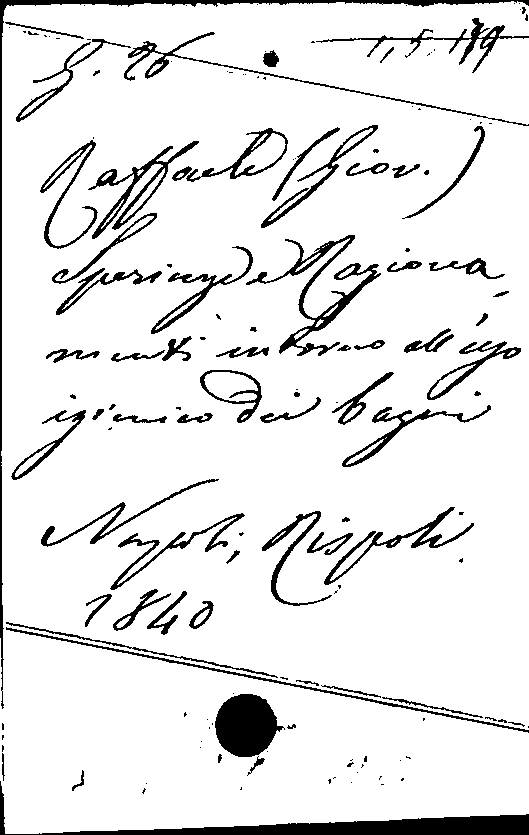 G. 26
1, 5. 179
Raffaele (Giov.)
Sperienze e Ragiona-
menti intorno all'uso
igienico dei bagni
Napoli, Rispoli.
1840